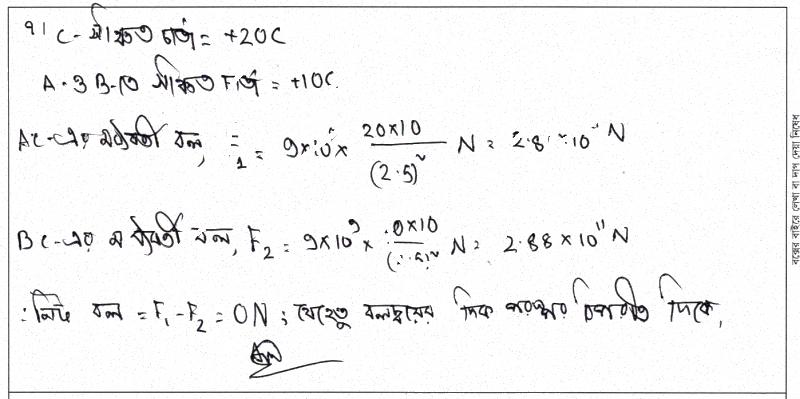 ৭। C-সঞ্চিত চার্জ = +20C
A ও B-তে সঞ্চিত চার্জ = +10C.
AC-এর মধ্যবর্তী বল, F₁ = 9×10⁹ × 20×10 / (2.5)² N = 2.88×10¹¹ N
BC-এর মধ্যবর্তী বল, F₂ = 9×10⁹ × 20×10 / (2.5)² N = 2.88×10¹¹ N
∴ নিট বল = F₁-F₂ = 0N; যেহেতু বলদ্বয়ের দিক পরস্পর বিপরীত দিকে,
বক্সের বাইরে লেখা বা দাগ দেয়া নিষেধ